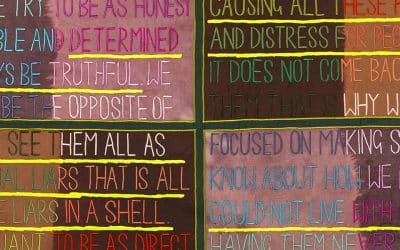 TRY TO BE AS HONEST
BLE AND DETERMINED
YS BE TRUTHFUL WE
BE THE OPPOSITE OF
CAUSING ALL THESE P
AND DISTRESS FOR PEO
IT DOES NOT COME BAC
THEM THAT IS WHY W
SEE THEM ALL AS
AL LIARS THAT IS ALL
E LIARS IN A SHELL.
WANT TO BE AS DIRECT
FOCUSED ON MAKING S
KNOW ABOUT HOW WE
COULD NOT LIVE WITH
HAVING THEM NEVER